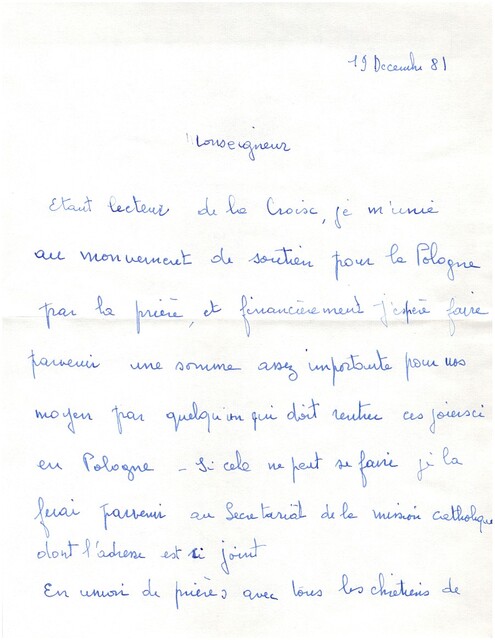 19 Decembre 81
Monseigneur
Etant lecteur de la Croix, je m'unie
au mouvement de soutien pour la Pologne
par la prière, et financièrement j'espère faire
parvenir une somme assez importante pour nos
moyen par quelqu'un qui doit rentrer ces joiersci
en Pologne - Si cela ne peut se faire je la
ferai parvenir au Secretariat de la mission catholique
dont l'adresse est ci joint
En union de prières avec tous les chrétiens de